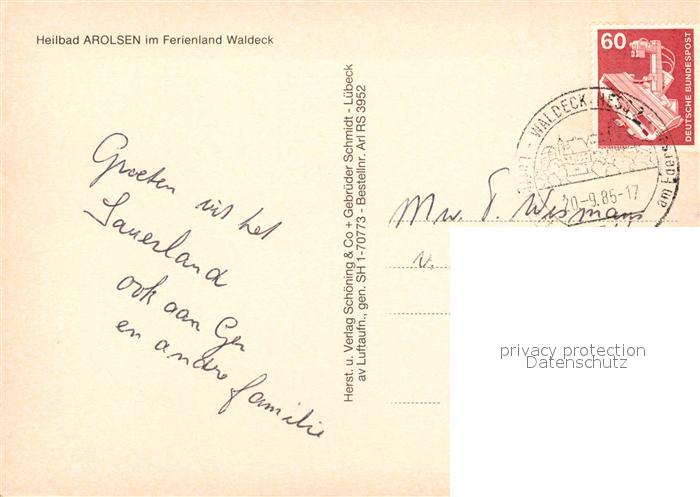 Heilbad AROLSEN im Ferienland Waldeck
Groeten uit het
Sauerland
ook aan Ger
en andre familie
Herst. u. Verlag Schöning & Co + Gebrüder Schmidt - Lübeck
av Luftaufn., gen. SH 1-70773 - Bestellnr. Arl RS 3952
60
DEUTSCHE BUNDESPOST
WALDECK, HESS 2
am Eders
20-9.85-17
Mw. T. Wismans
v.
privacy protection
Datenschutz